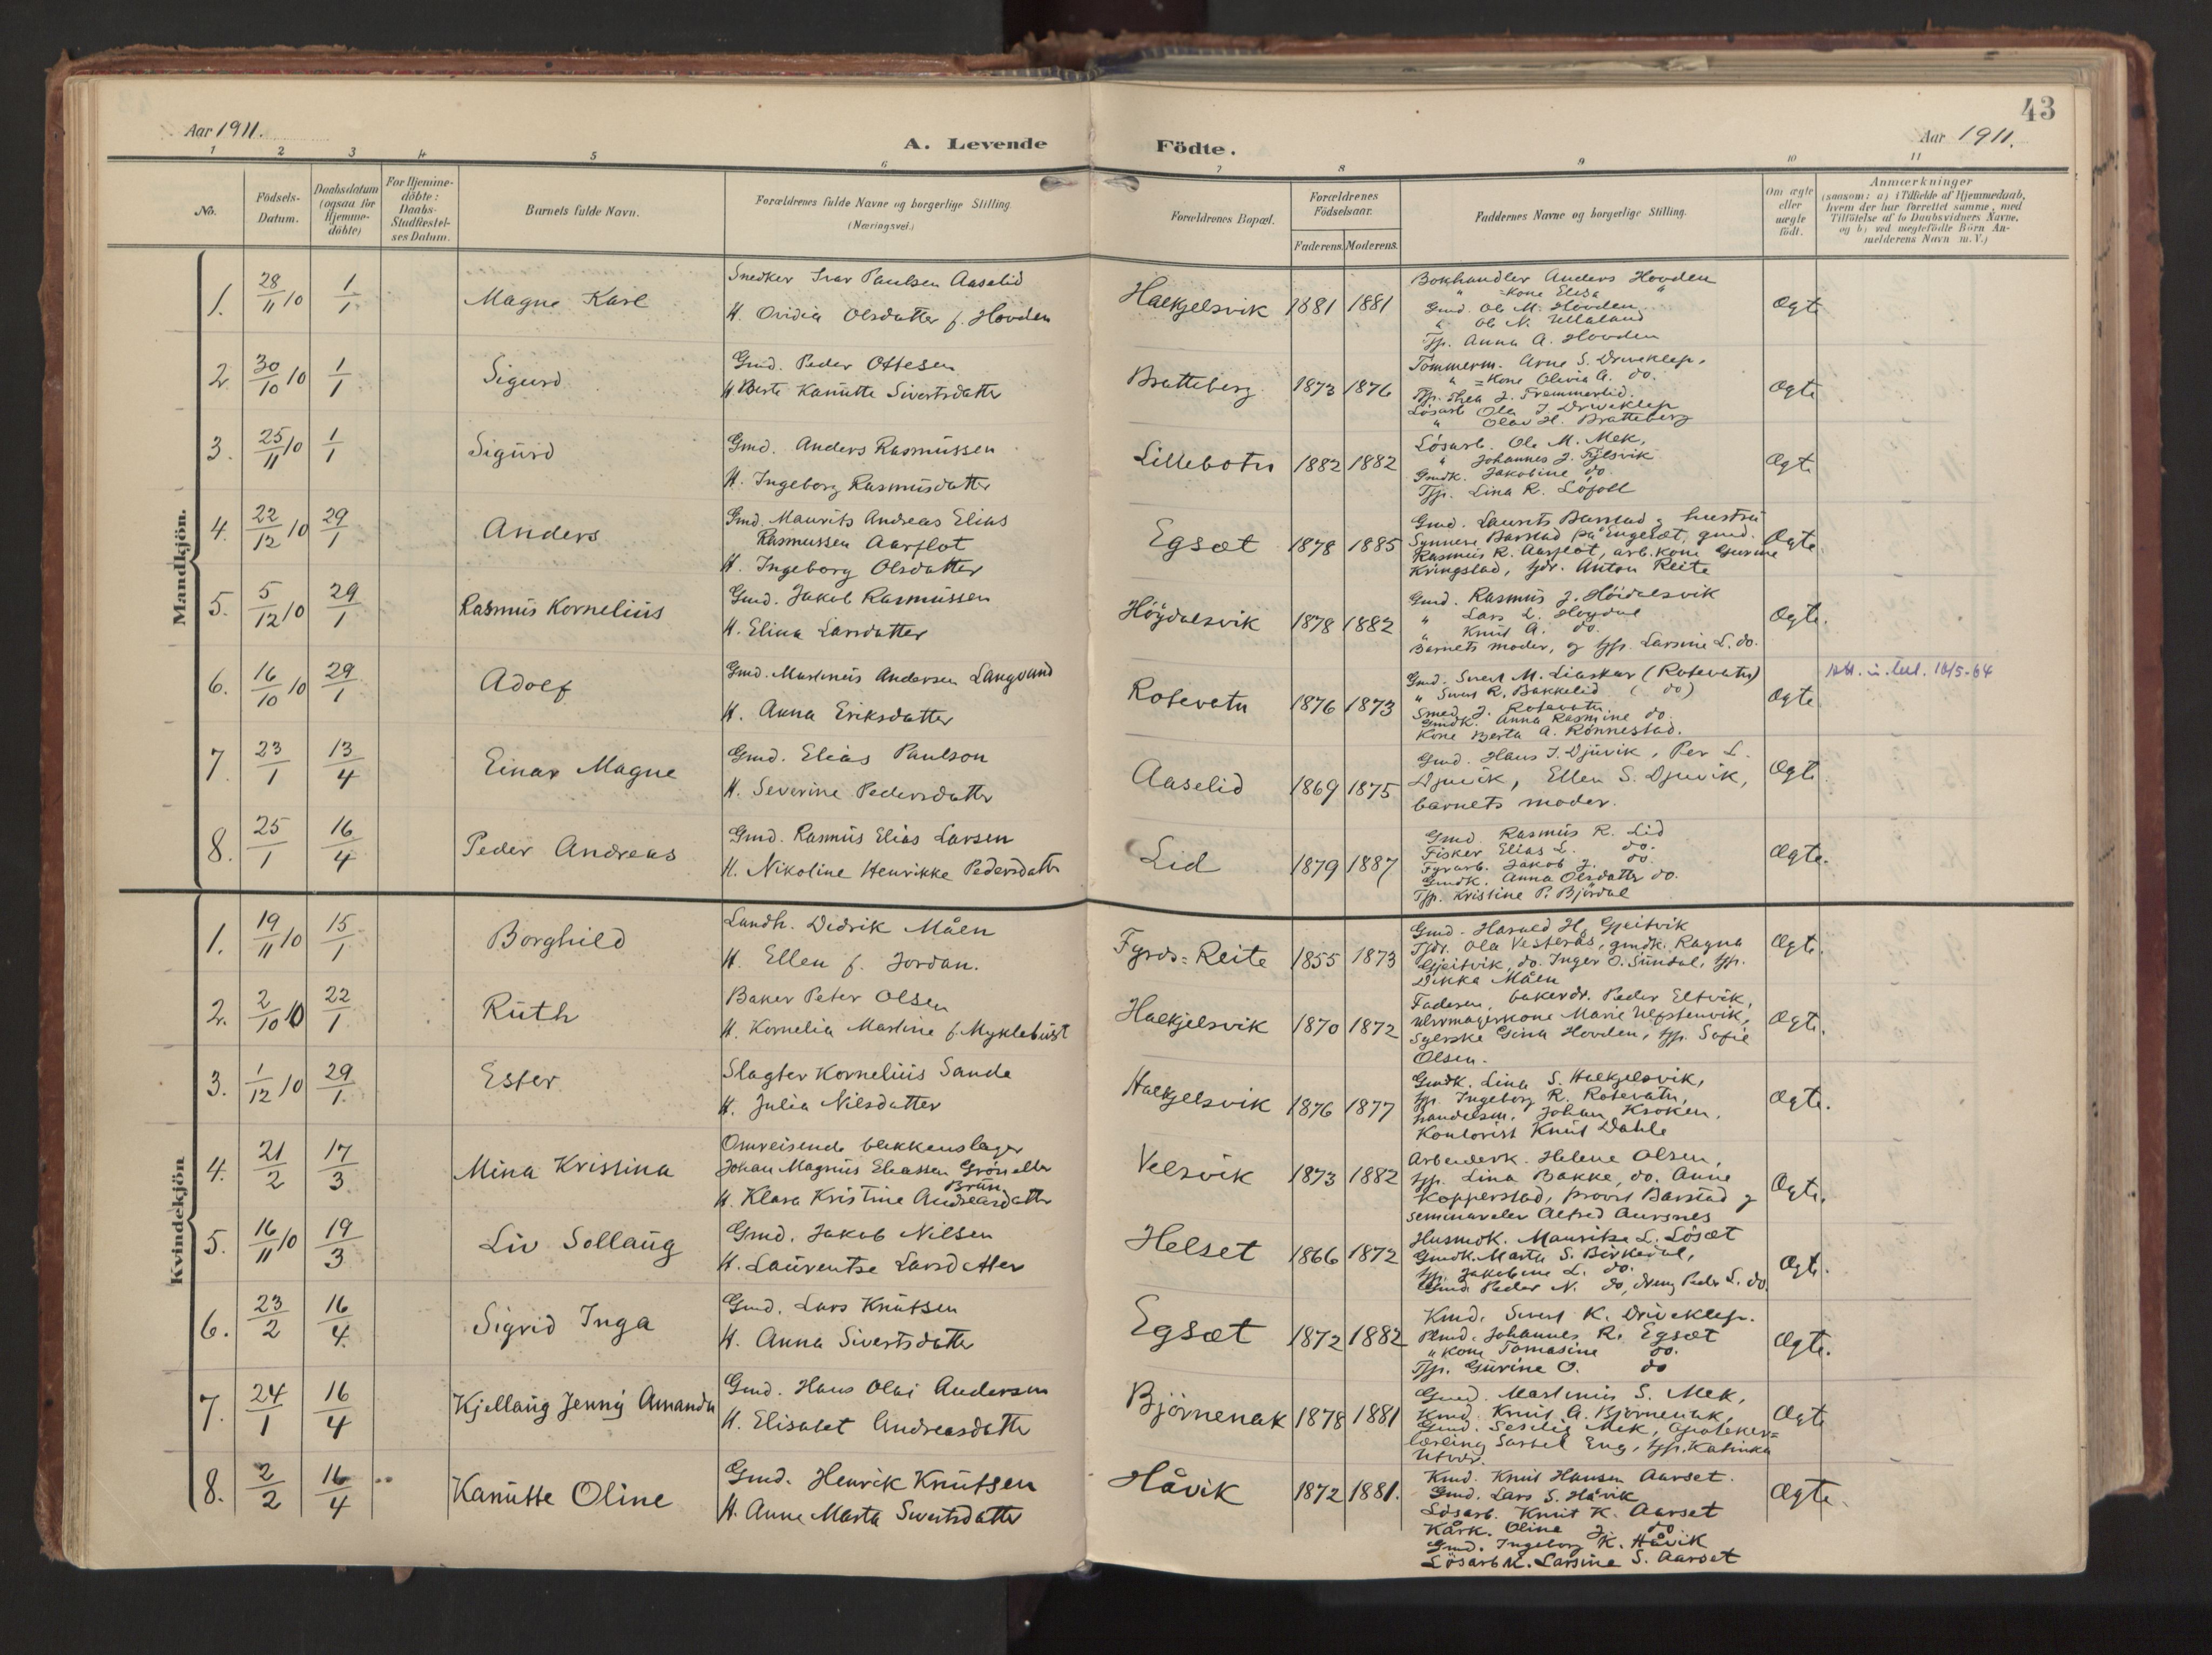 43
Aar 1911.
A. Levende Födte.
Aar 1911.
1 2 3 4 5 6 7 8 9 10 11
No.
Födsels-Datum.
Daabsdatum (ogsaa for Hjemme-döbte)
For Hjemme-döbte: Daabs-Stadfæstel-ses Datum.
Barnets fulde Navn.
Forældrenes fulde Navne og borgerlige Stilling. (Næringsvei.)
Forældrenes Bopæl.
Forældrenes Födselsaar.
Faderens. Moderens.
Faddernes Navne og borgerlige Stilling.
Om ægte eller uægte födt.
Anmærkninger
(saasom: a) i Tilfælde af Hjemmedaab,
hvem der har forrettet samme, med
Tilföielse af to Daabsvidners Navne,
og b) ved uægtefödte Börn An-
melderens Navn m. V.)
Mandkjön.
1. 28/11 10 1/1 Magne Karl
Snedker Ivar Paulsen Aaselid
H. Ovidia Olsdatter f. Hovden
Halkjelsvik 1881 1881
Bokhandler Anders Hovden
" =Kone Elisa "
Gmd. Ole M. Hovden
" Ole N. Ullaland
Tjp. Anna A. Hovden
Ægte
2. 30/10 10 1/1 Sigurd
Gmd. Peder Ottesen
H. Berte Kanutte Sivertsdatter
Bratteberg 1873 1876
Tömmerm. Arne S. Driveklep,
" =Kone Olivia A. do.
Tjp. Thea J. Fremmerlid.
Lösarb Ola J. Driveklep
" Olav H. Bratteberg
Ægte
3. 25/11 10 1/1 Sigurd
Gmd. Anders Rasmussen
H. Ingeborg Rasmusdatter
Lillebotn 1882 1882
Lösarb. Ole M. Mek,
" Johannes J.
Gmdk. Jakobine do.
Tjp. Lina R. Löfoll
Ægte
4. 22/12 10 29/1 Anders
Gmd. Maurits Andreas Elias
Rasmussen Aarflot
H. Ingeborg Olsdatter
Egsæt 1878 1885
Gmd. Laurits Barstad og hustru
Synnere Barstad på Engeset, gmd.
Rasmus R. Aarflot, arb. kone Gurine
Kringstad, tjdr. Anton Reite
Ægte.
5. 5/12 10 29/1 Rasmus Kornelius
Gmd. Jakob Rasmussen
H. Elina Larsdatter
Höydalsvik 1878 1882
Gmd. Rasmus J. Höidalsvik
" Lars L. Höydal
" Knut A. do.
Barnets moder, og tjp. Larsine L. do.
Ægte.
6. 16/10 10 29/1 Adolf
Gmd. Martinus Andersen Langvand
H. Anna Eriksdatter
Rotevatn 1876 1873
Gmd. Sivert M. Liaskar (Rotevatn)
" Sivert R. Bakkelid ( do)
Smed J. Rotevatn
Gmdk. Anna Rasmine do.
Kone Berta A. Rönnestad.
Ægte
7. 23/1 13/4 Einar Magne
Gmd. Elias Paulson
H. Severine Pedersdatter
Aaselid 1869 1875
Gmd. Hans J. Djuvik, Per L.
Djuvik, Ellen S. Djuvik,
barnets moder.
Ægte
8. 25/1 16/4 Peder Andreas
Gmd. Rasmus Elias Larsen
H. Nikoline Henrikke Pedersdatter
Lid 1879 1887
Gmd Rasmus R. Lid
Fisker Elias L. do.
Fyrarb. Jakob J. do.
Gmdk. Anna Olsdatter do.
Tjp. Kristine P. Björdal
Ægte.
Kvindekjön
1. 19/11 10 15/1 Borghild
Landh. Didrik Måen
H. Ellen f. Jordan.
Fyrds=Reite 1855 1873
Gmd. Harald H. Gjeitvik
Tjdr. Ola Vesterås, gmdk. Ragna
Gjeitvik, do. Inger O. Sundal, tjp.
Dikka Måen
Ægte.
2. 2/10 10 22/1 Ruth
Baker Peter Olsen
H. Kornelia Martine f. Myklebust
Halkjelsvik 1870 1872
Faderen, bakerdr. Peder Eltvik,
urmagerkone Marie Ulfstenvik,
Syerske Gina Hovden, tjp. Sofie
Olsen.
Ægte.
3. 1/12 10 29/1 Ester
Slagter Kornelius Sande
H. Julia Nilsdatter
Halkjelsvik 1876 1877
Gmdk. Lina S. Halkjelsvik,
tjp. Ingeborg R. Rotevatn,
handelsm. Johan Kroken,
Kontorist Knut Dahle
Ægte.
4. 21/2 17/3 Mina Kristina
Omreisende blekkenslager
Johan Magnus Eliassen Grön eller
Brun.
H. Klara Kristine Andreasdatter
Velsvik 1873 1882
Arbeiderk. Helene Olsen,
tjp. Lina Bakke, do. Anne
Kopperstad, provst Barstad og
seminarelev Alfred Aursnes
Ægte.
5. 16/11 10 19/3 Liv Sollaug
Gmd. Jakob Nilsen
H. Laurentse Larsdatter
Helset 1866 1872
Husmdk. Mauritse L. Lösæt
Gmdk. Marta S. Birkedal,
tjp. Jakobine L. do.
Gmd Peder N. do, dreng Peder L. do.
Ægte.
6. 23/2 16/4 Sigrid Inga
Gmd. Lars Knutsen
H. Anna Sivertsdatter
Egsæt 1872 1882
Kmd. Sivert K. Driveklep.
Pmd. Johannes R. Egsæt
" Kone Tomasine do.
Tjp. Gurine O. do
Ægte.
7. 24/1 16/4 Kjellaug Jenny Amanda
Gmd. Hans Olai Andersen
H. Elisabet Andreasdatter
Björnenak 1878 1881
Gmd. Martinus S. Mek,
Kmd. Knut A. Björnenak,
Gmd. Mek, apoteker=
lærling Eng, tjp. Katinka
Ægte
8. 2/2 16/4 Kanutte Oline
Gmd. Henrik Knutsen
H. Anne Marta Sivertsdatter
Håvik 1872 1881.
Kmd. Knut Hansen Aarset.
Gmd. Lars S. Håvik
Lösarb. Knut K. Aarset
Kårk. Oline J. do
Gmd. Ingeborg K. Håvik
Lösarb.k. Larsine S. Aarset
Ægte.